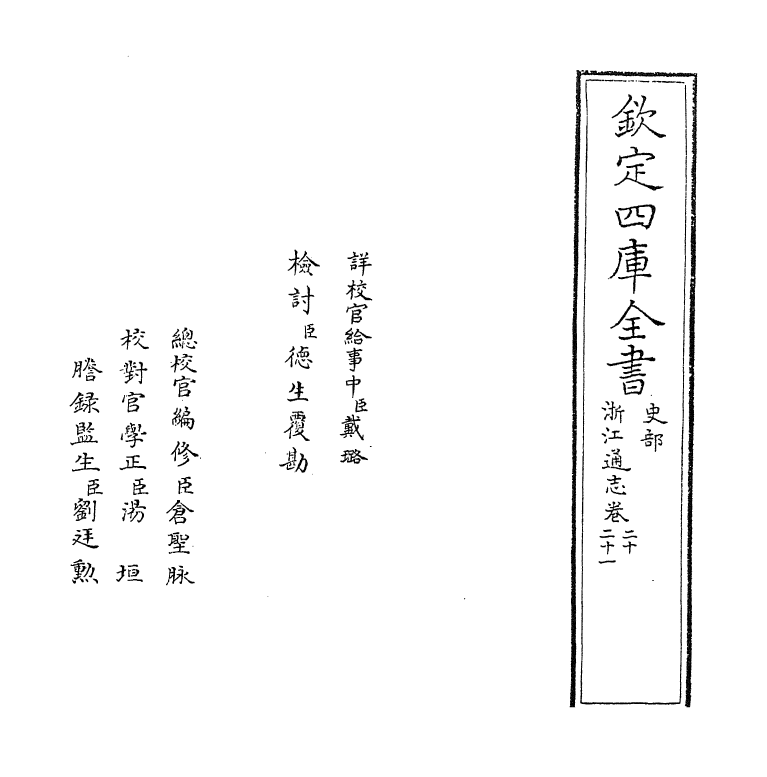 欽定四庫全書
史部
浙江通志卷二十
二十一
詳校官給事中臣戴璐
檢討臣德生覆勘
總校官編修臣倉聖脉
校對官學正臣湯垣
謄録監生臣劉廷勲